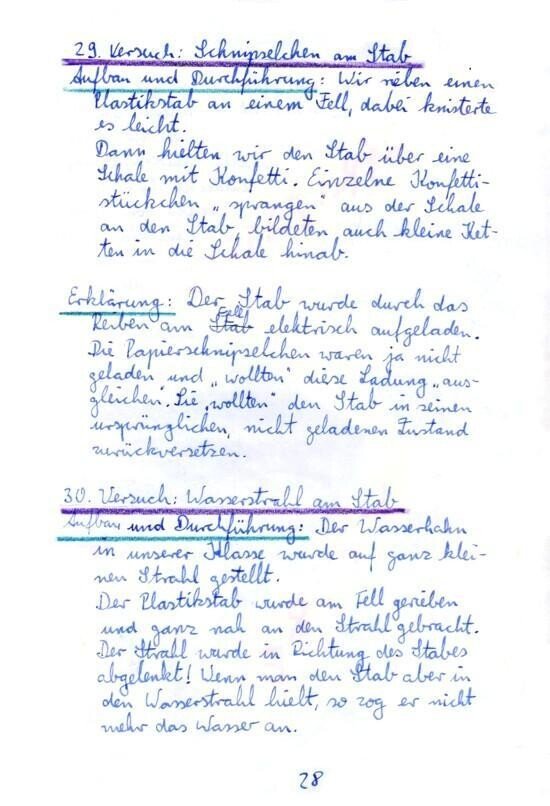 29. Versuch: Schnipselchen am Stab
Aufbau und Durchführung: Wir rieben einen
Plastikstab an einem Fell, dabei knisterte
es leicht.
Dann hielten wir den Stab über eine
Schale mit Konfetti. Einzelne Konfetti-
stückchen „sprangen" aus der Schale
an den Stab, bildeten auch kleine Ket-
ten in die Schale hinab.
Erklärung: Der Stab wurde durch das
Fell
Reiben am Stab elektrisch aufgeladen.
Die Papierschnipselchen waren ja nicht
geladen und „wollten" diese Ladung „aus-
gleichen". Sie „wollten" den Stab in seinen
ursprünglichen, nicht geladenen Zustand
zurückversetzen.
30. Versuch: Wasserstrahl am Stab
Aufbau und Durchführung: Der Wasserhahn
in unserer Klasse wurde auf ganz klei-
nen Strahl gestellt.
Der Plastikstab wurde am Fell gerieben
und ganz nah an den Strahl gebracht.
Der Strahl wurde in Richtung des Stabes
abgelenkt! Wenn man den Stab aber in
den Wasserstrahl hielt, so zog er nicht
mehr das Wasser an.
28